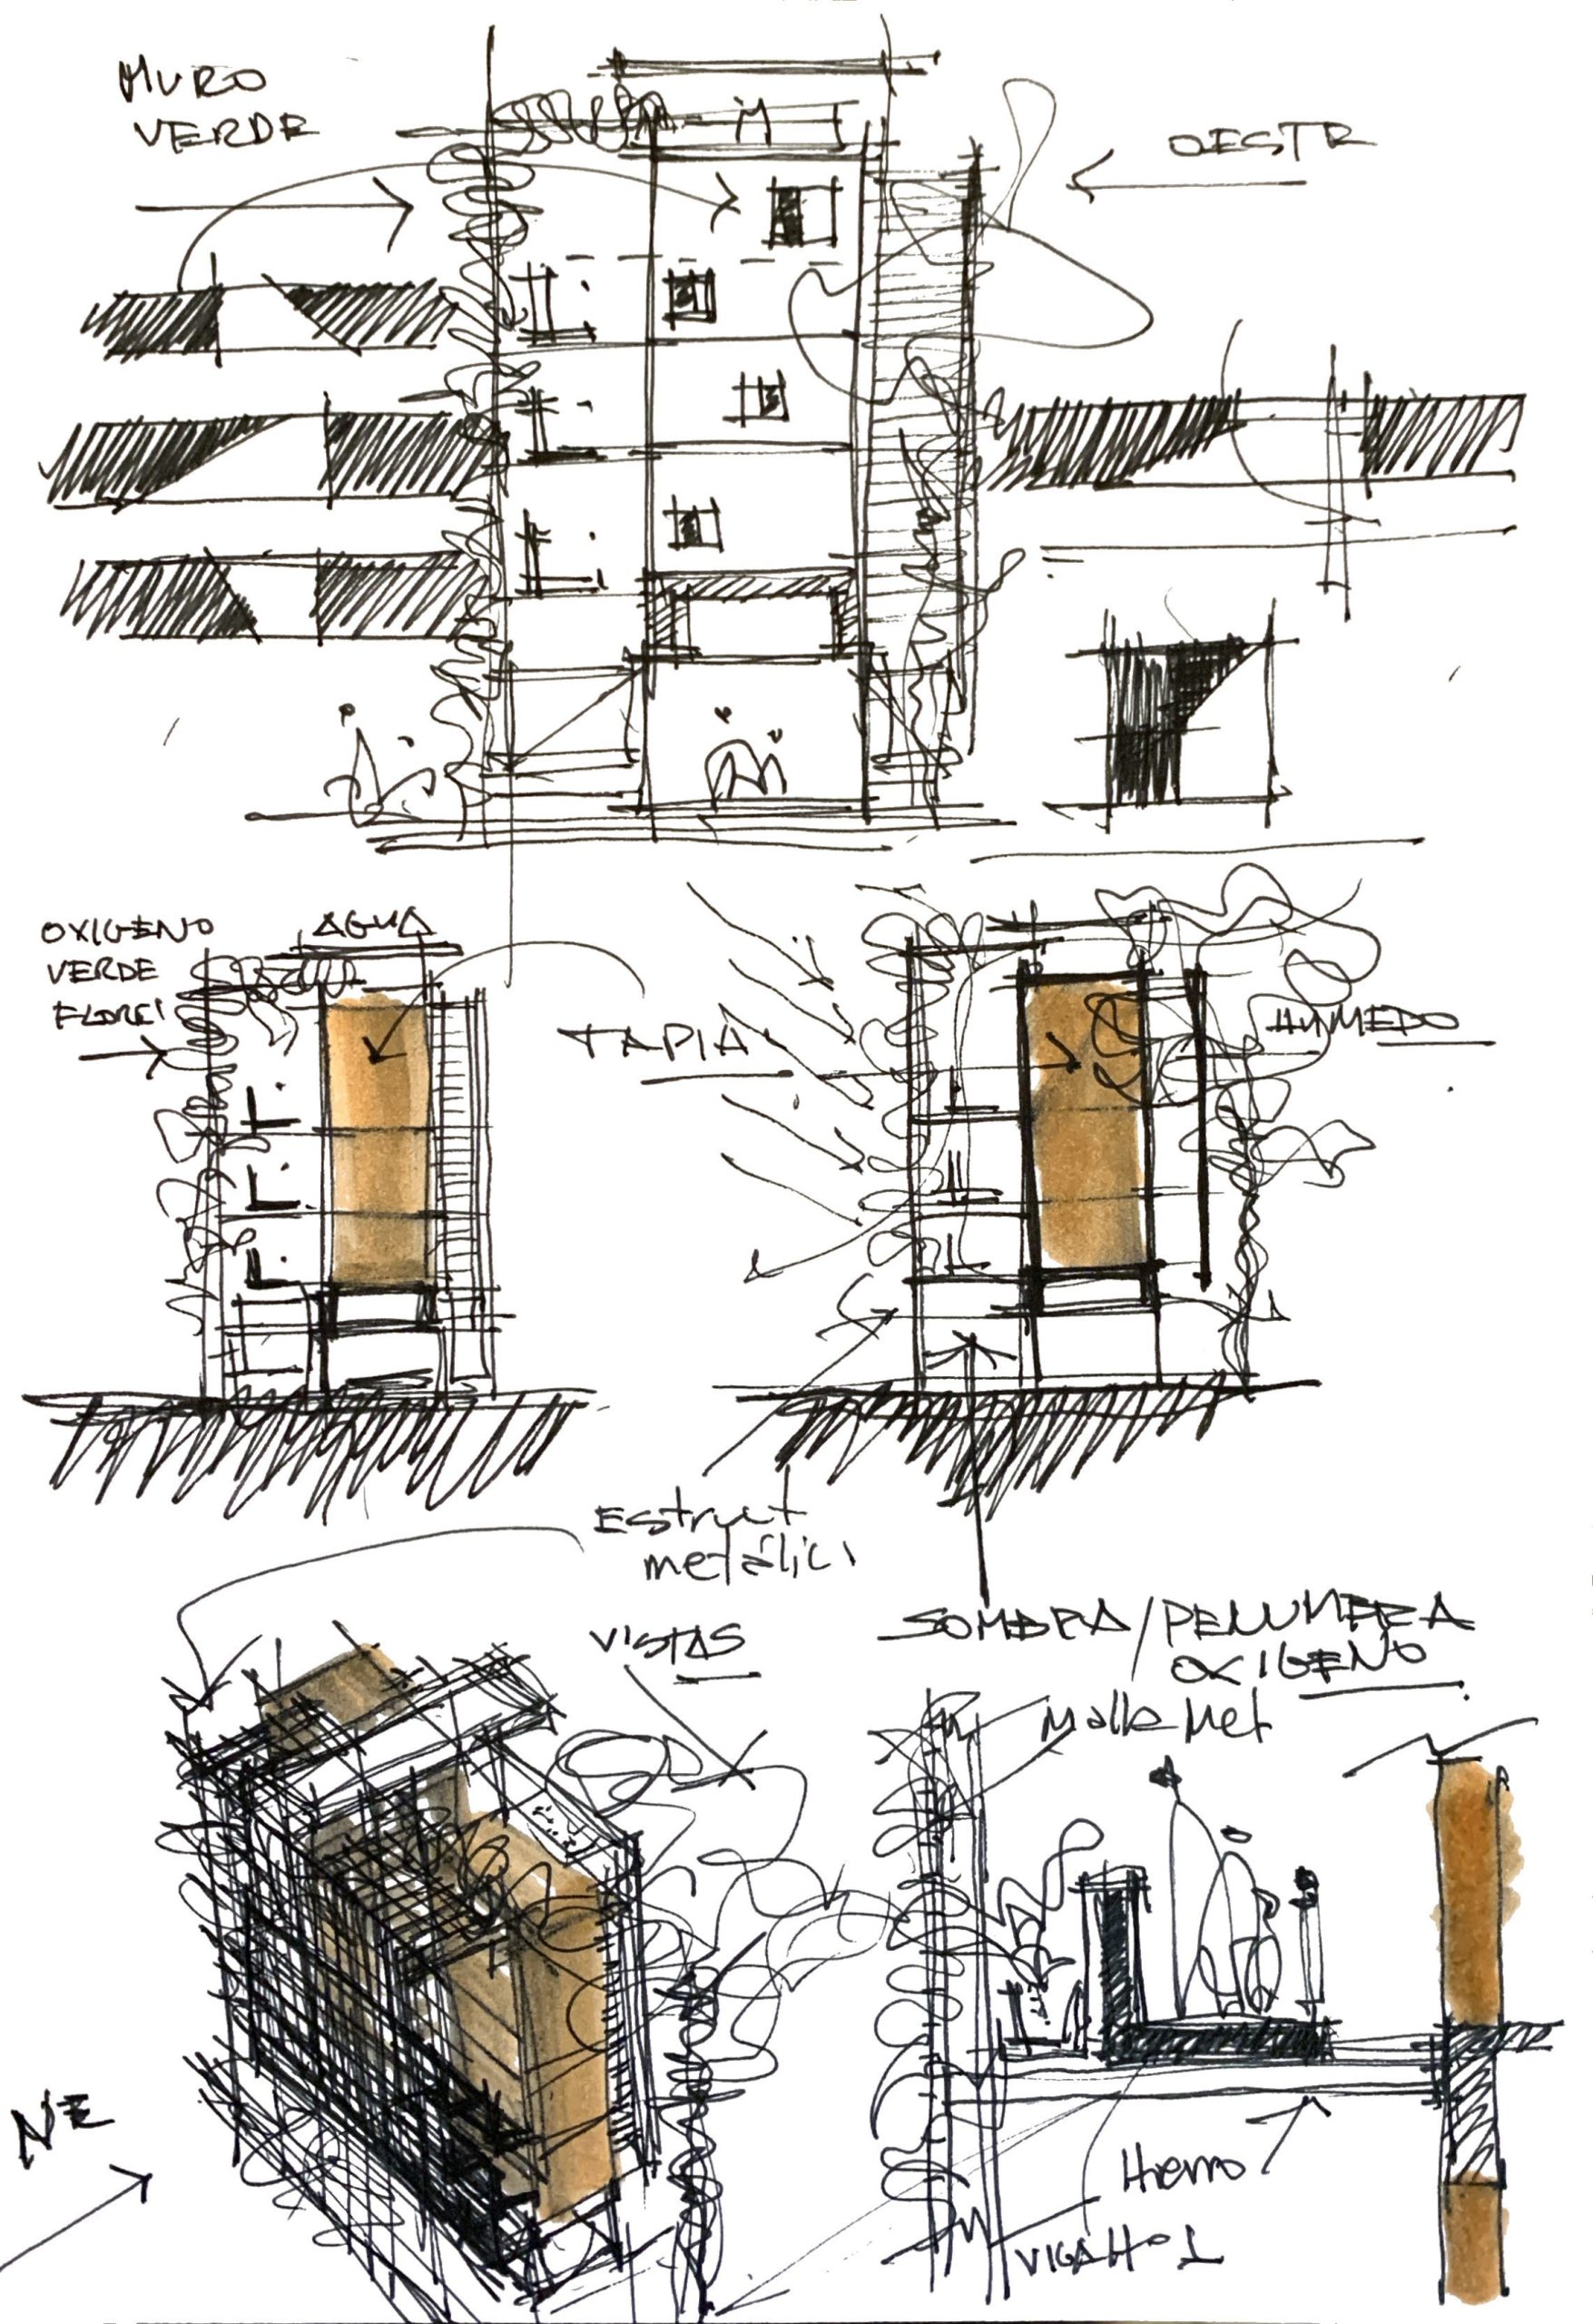 MURO
VERDE
OESTE
OXIGENO
VERDE
AGUA
TAPIA
HUMEDO
Estruct
metálici
VISTAS
SOMBRA/PENUMBRA
OXIGENO
Malla Met
NE
Hierro